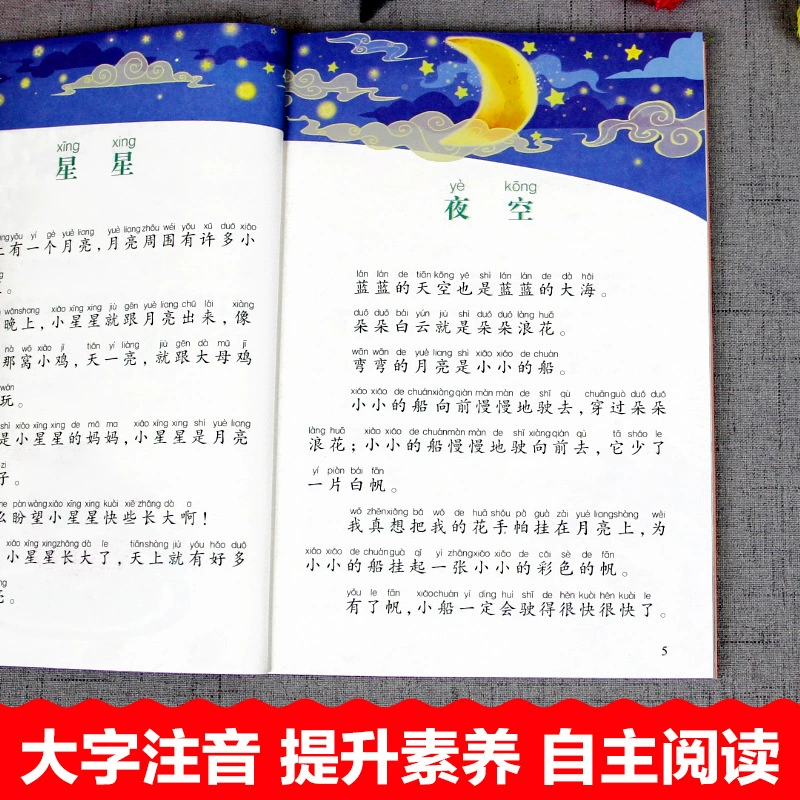 xīng xing
星星
yǒu yí gè yuè liang yuè liang zhōu wéi yǒu xǔ duō xiǎo
上有一个月亮，月亮周围有许多小
。
wǎn shang xiǎo xīng xing jiù gēn yuè liang chū lái xiàng
晚上，小星星就跟月亮出来，像
nà wō xiǎo jī tiān yí liàng jiù gēn dà mǔ jī
那窝小鸡，天一亮，就跟大母鸡
wán
玩。
shì xiǎo xīng xing de mā ma xiǎo xīng xing shì yuè liang
是小星星的妈妈，小星星是月亮
zi
子。
me pàn wàng xiǎo xīng xing kuài xiē zhǎng dà a
么盼望小星星快些长大啊！
xiǎo xīng xing zhǎng dà le tiān shàng jiù yǒu hǎo duō
小星星长大了，天上就有好多
亮。
yè kōng
夜空
lán lán de tiān kōng yě shì lán lán de dà hǎi
蓝蓝的天空也是蓝蓝的大海。
duǒ duǒ bái yún jiù shì duǒ duǒ làng huā
朵朵白云就是朵朵浪花。
wān wān de yuè liang shì xiǎo xiǎo de chuán
弯弯的月亮是小小的船。
xiǎo xiǎo de chuán xiàng qián màn màn de shǐ qù chuān guò duǒ duǒ
小小的船向前慢慢地驶去，穿过朵朵
làng huā xiǎo xiǎo de chuán màn màn de shǐ xiàng qián qù tā shǎo le
浪花；小小的船慢慢地驶向前去，它少了
yí piàn bái fān
一片白帆。
wǒ zhēn xiǎng bǎ wǒ de huā shǒu pà guà zài yuè liang shàng wèi
我真想把我的花手帕挂在月亮上，为
xiǎo xiǎo de chuán guà qǐ yì zhāng xiǎo xiǎo de cǎi sè de fān
小小的船挂起一张小小的彩色的帆。
yǒu le fān xiǎo chuán yí dìng huì shǐ de hěn kuài hěn kuài le
有了帆，小船一定会驶得很快很快了。
5
大字注音 提升素养 自主阅读